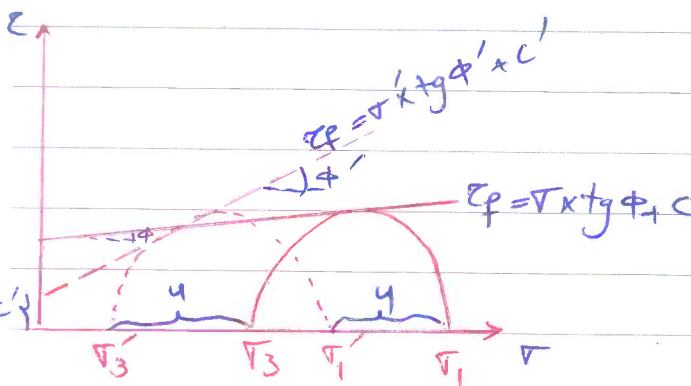 τ
τf = σ' x tg Φ' + c'
Φ'
τf = σ x tg Φ + c
Φ
c'
u
u
σ3'
σ3
σ1'
σ1
σ